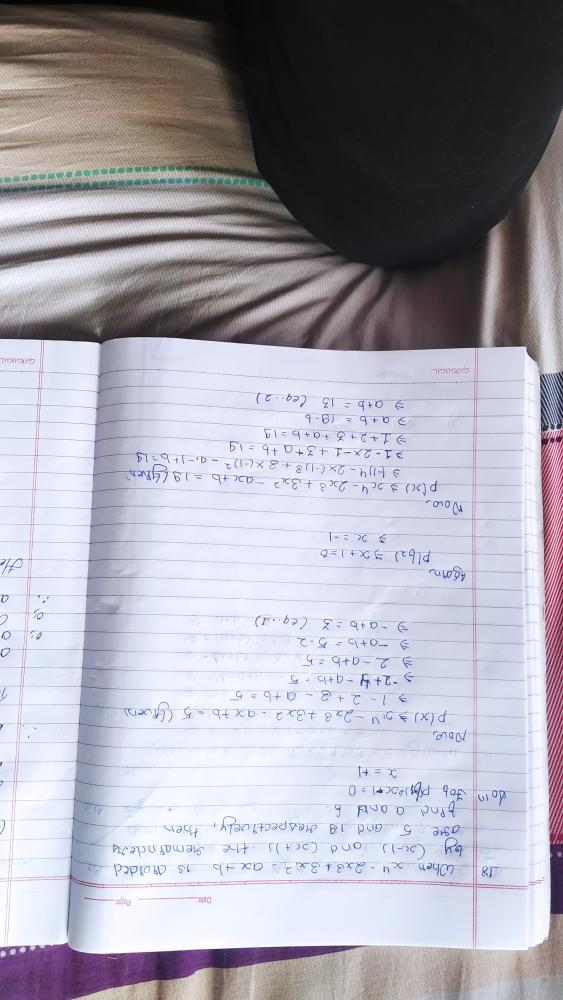 Date: Page:
18 When x⁴ - 2x³ + 3x² - ax + b is divided
by (x-1) and (x+1) the remainders
are 5 and 19 respectively, then
find a and b.
Soln For x-1=0
x = +1
Now.
p(x) ⇒ x⁴ - 2x³ + 3x² - ax + b = 5 (given)
⇒ 1 - 2 + 3 - a + b = 5
⇒ -2 + 4 - a + b = 5
⇒ 2 - a + b = 5
⇒ -a + b = 5 - 2
⇒ -a + b = 3 (eq. 1)
Again.
⇒ x + 1 = 0
⇒ x = -1
Now.
p(x) ⇒ x⁴ - 2x³ + 3x² - ax + b = 19 (given)
⇒ (-1)⁴ - 2x(-1)³ + 3x(-1)² - a.-1 + b = 19
⇒ 1 - 2x-1 + 3 + a + b = 19
⇒ 1 + 2 + 3 + a + b = 19
⇒ a + b = 19 - 6
⇒ a + b = 13 (eq. 2)
GURUKUL
GURUKUL